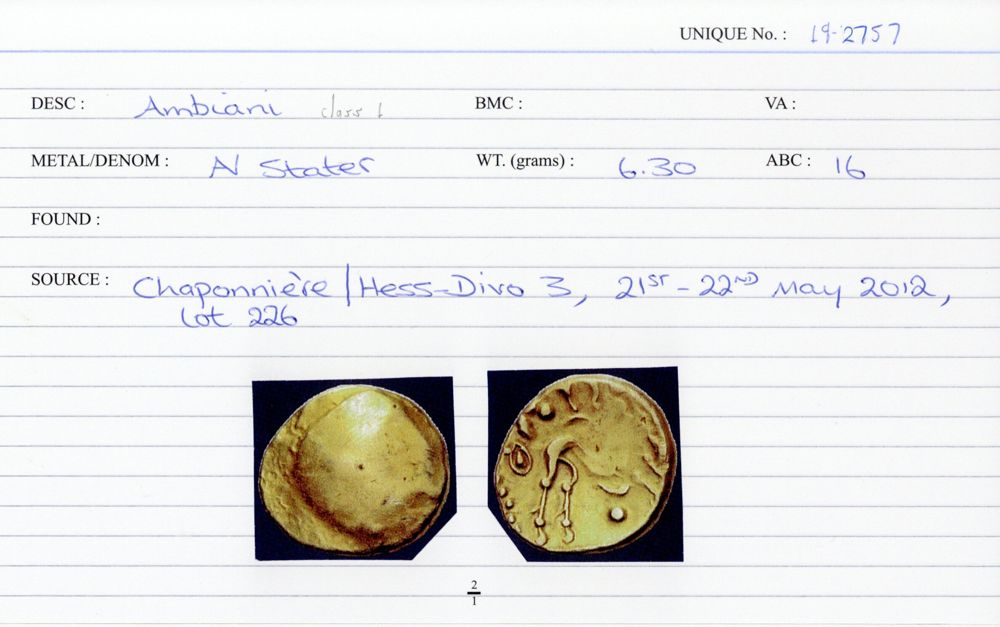 UNIQUE No. : 19-2757
DESC : Ambiani class 1 BMC : VA :
METAL/DENOM : N Stater WT. (grams) : 6.30 ABC : 16
FOUND :
SOURCE : Chaponnière / Hess-Divo 3, 21ST - 22ND May 2012,
Lot 226
2
1